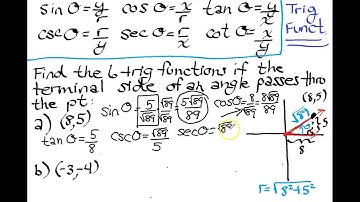 sin θ = y/r   cos θ = x/r   tan θ = y/x   Trig
csc θ = r/y   sec θ = r/x   cot θ = x/y   Funct.
Find the 6 trig functions if the
terminal side of an angle passes thro
the pt:
a) (8,5)   sin θ = 5/√89 · √89/√89 = 5√89/89   cos θ = 8/√89 = 8√89/89   (8,5)
tan θ = 5/8   csc θ = √89/5   sec θ = √89   √89   5
8
b) (-3,-4)   r = √8²+5²